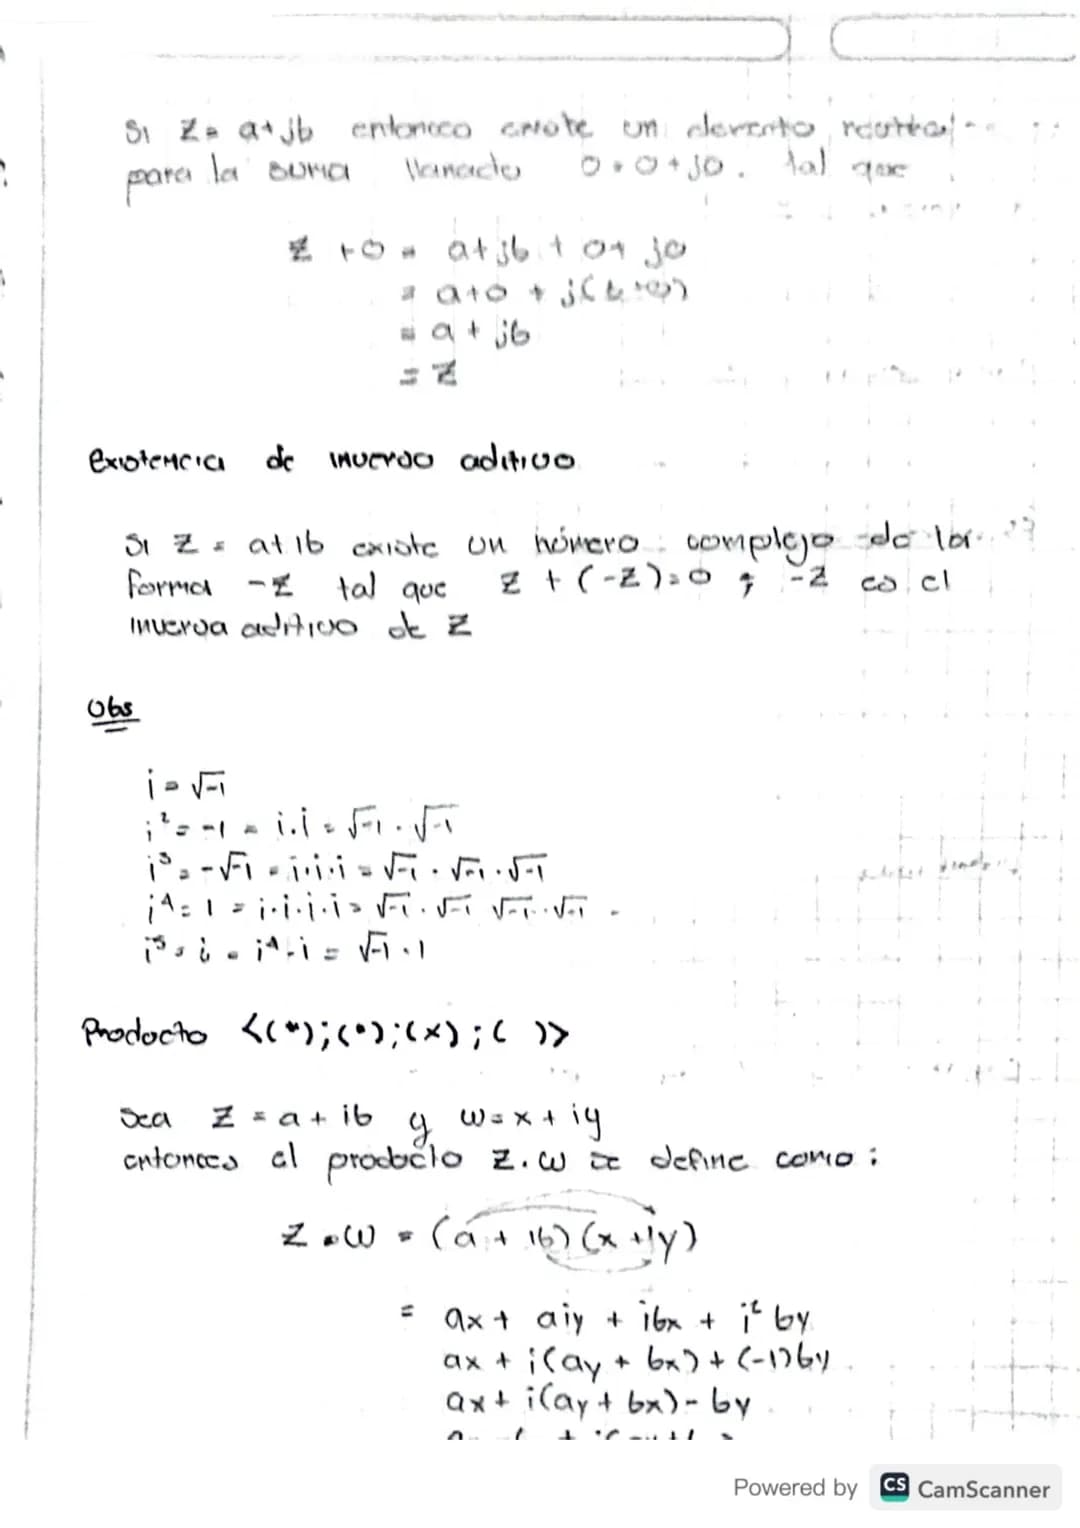 Si z = a+jb entonces existe un elemento neutral
para la suma llamado 0 = 0+j0. tal que
z + 0 = a+jb + 0+j0
= a+0 + j(b+0)
= a+jb
= z
existencia de inverso aditivo
Si z = a+ib existe un número complejo de la
forma -z tal que z + (-z)=0 ; -z es el
inversa aditivo de z
Obs
i = √-1
i² = -1 = i.i = √-1 . √-1
i³ = -√-1 = i.i.i = √-1 . √-1 . √-1
i⁴ = 1 = i.i.i.i = √-1 . √-1 √-1 . √-1
i⁵ = i = i⁴.i = √-1 . 1
Producto <(*);(•);(x);( )>
Sea z = a + ib y w = x + iy
entonces el producto z.w se define como :
z . w = (a + ib)(x + iy)
= ax + aiy + ibx + i² by
ax + i(ay + bx) + (-1)by
ax + i(ay + bx) - by
Powered by CS CamScanner